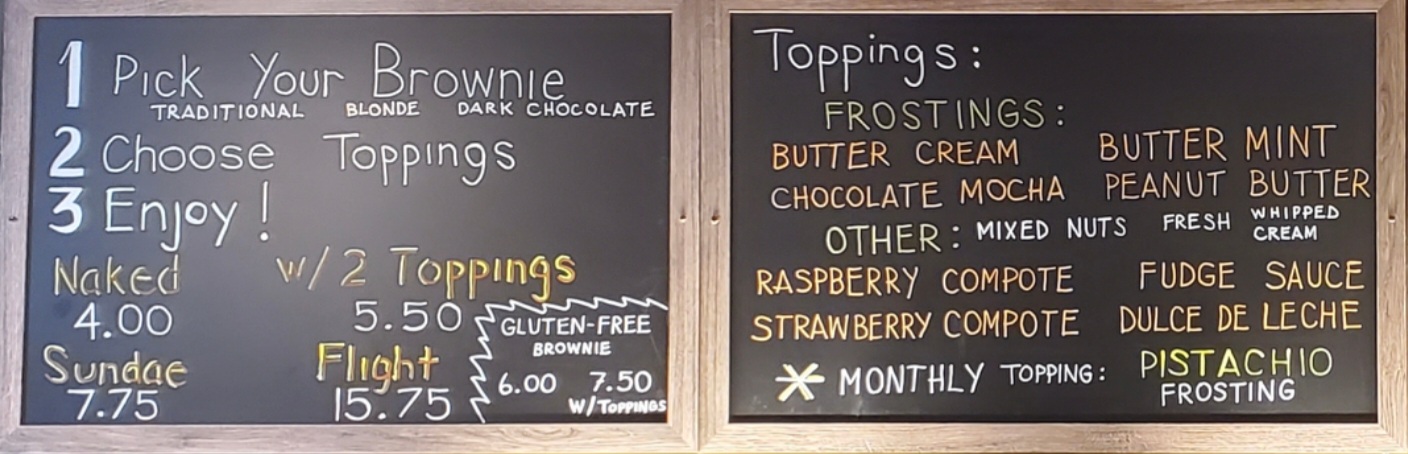 1 Pick Your Brownie
TRADITIONAL BLONDE DARK CHOCOLATE
2 Choose Toppings
3 Enjoy!
Naked w/2 Toppings
4.00 5.50
Sundae Flight
7.75 15.75
GLUTEN-FREE
BROWNIE
6.00 7.50
W/TOPPINGS
Toppings:
FROSTINGS:
BUTTER CREAM BUTTER MINT
CHOCOLATE MOCHA PEANUT BUTTER
OTHER: MIXED NUTS FRESH WHIPPED CREAM
RASPBERRY COMPOTE FUDGE SAUCE
STRAWBERRY COMPOTE DULCE DE LECHE
* MONTHLY TOPPING: PISTACHIO
FROSTING